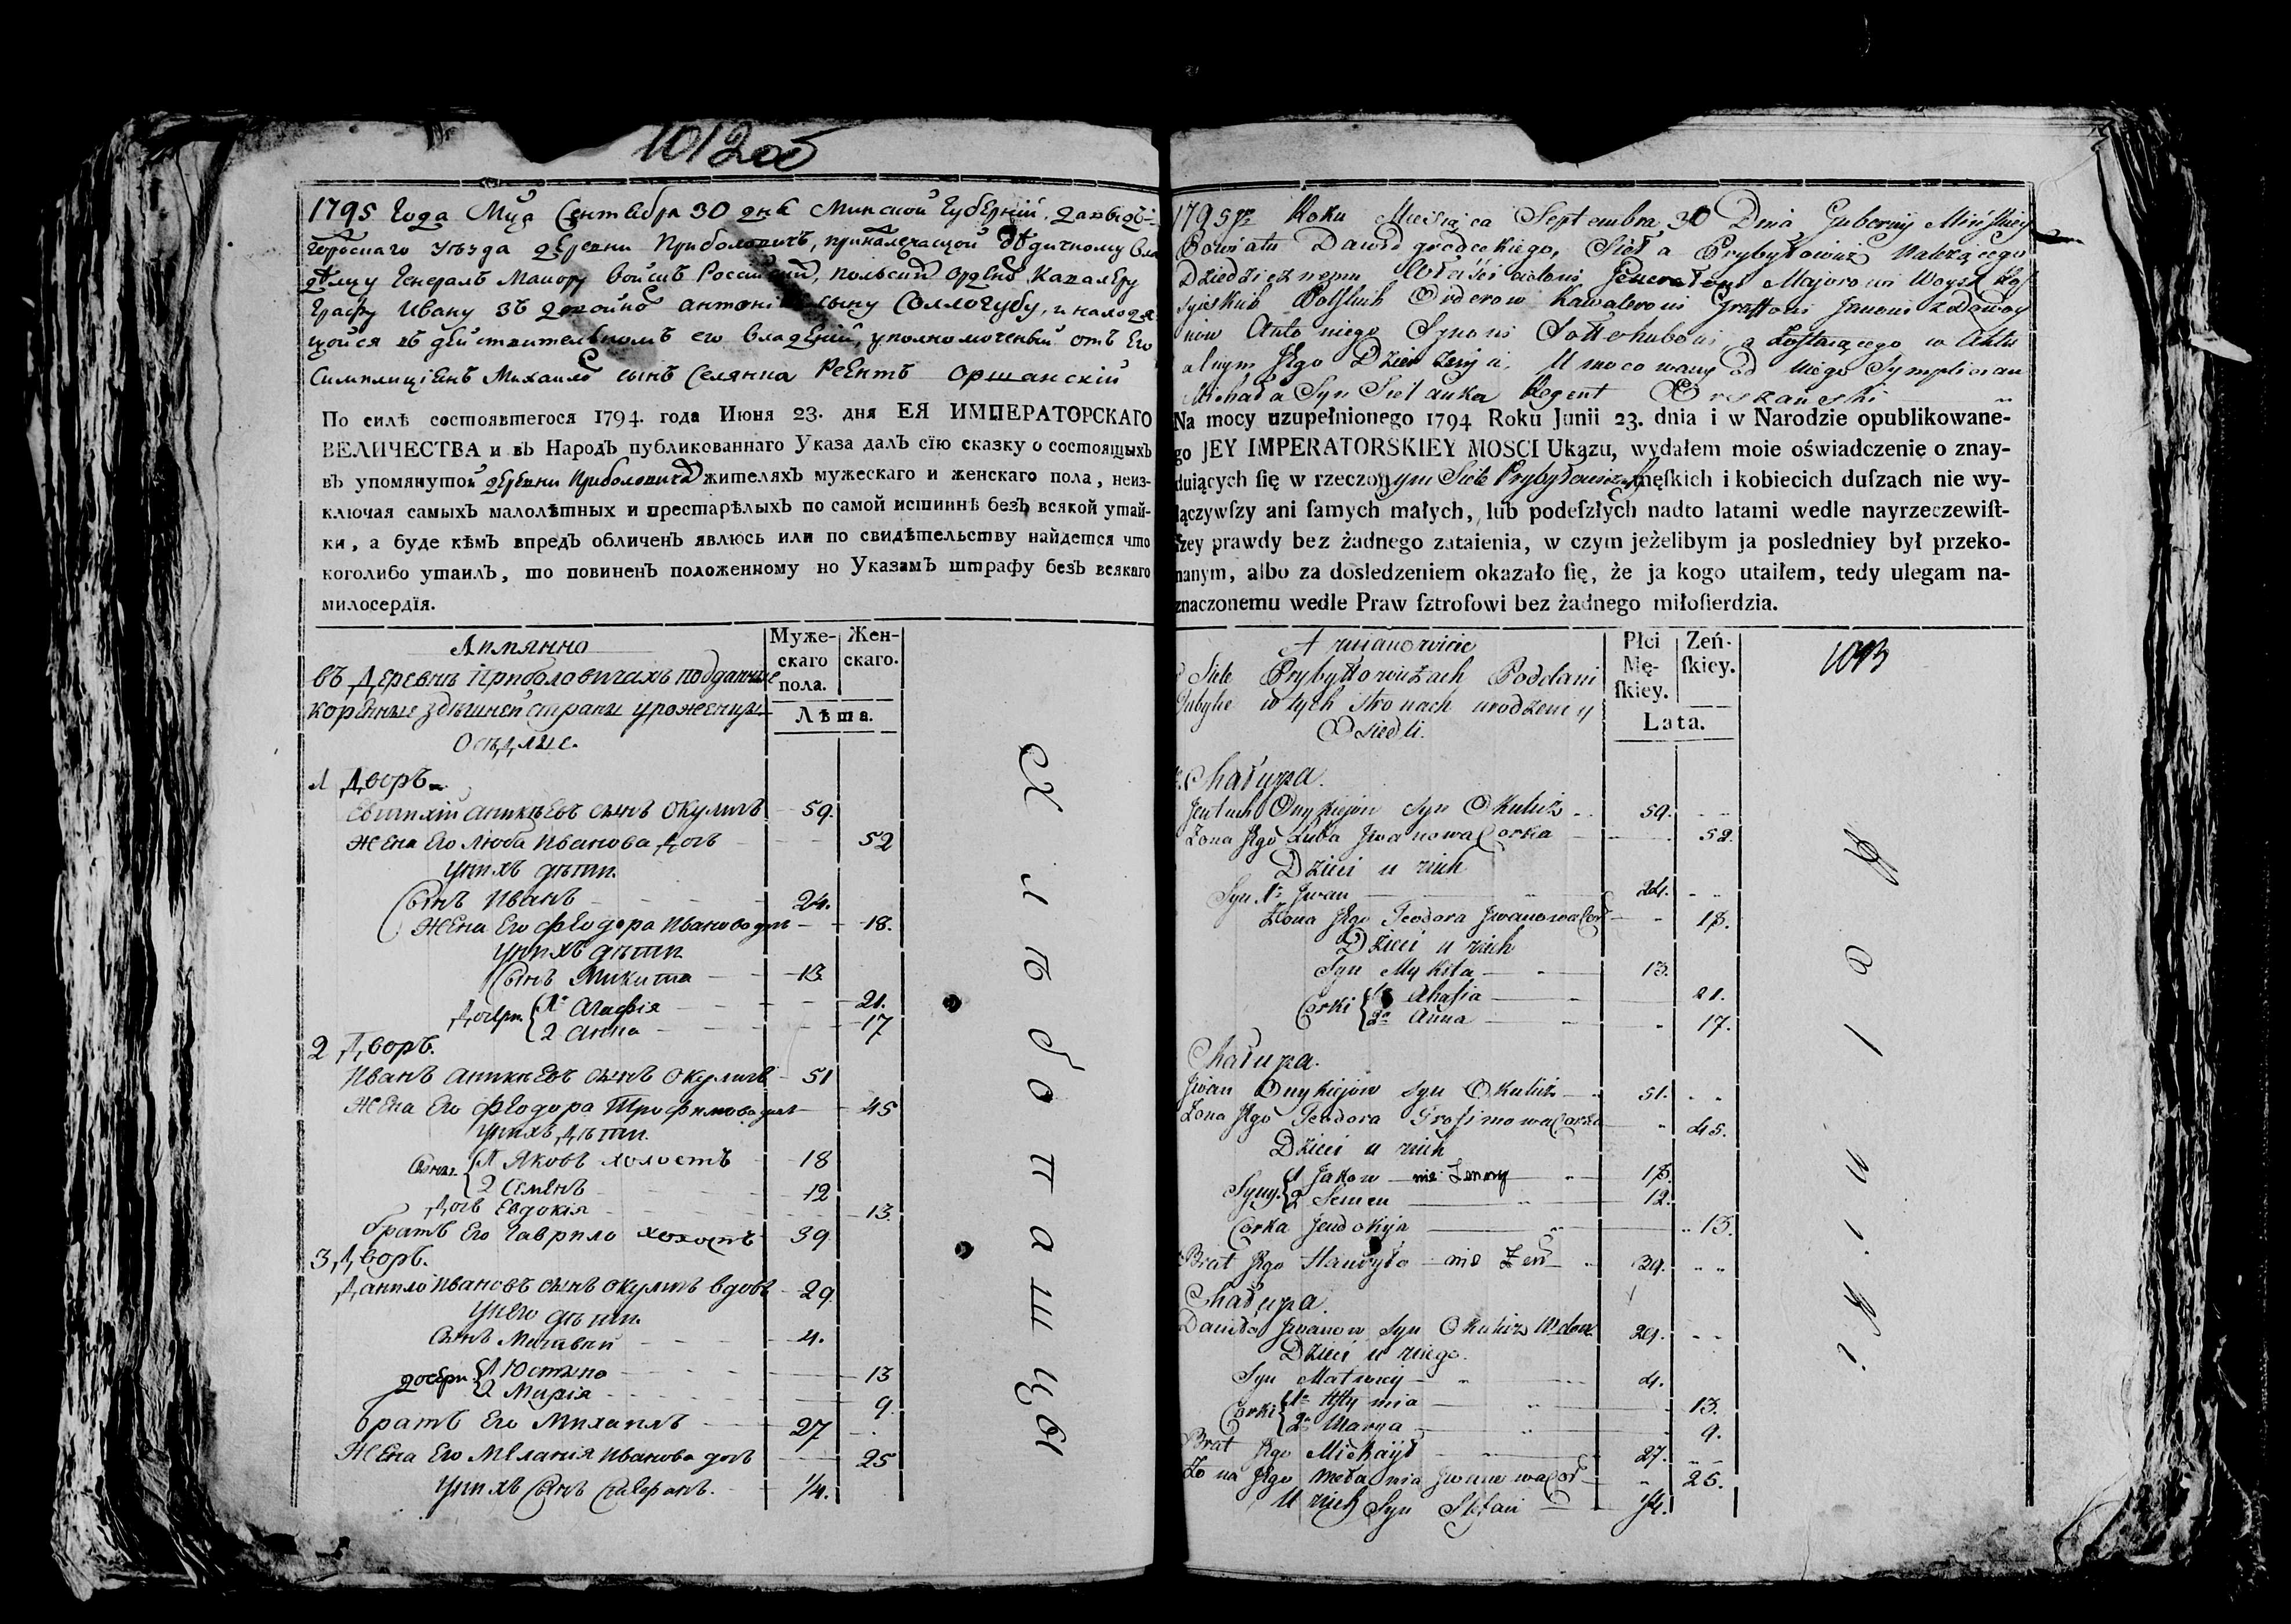 1012 об
1795 Года Мца Сентября 30 дня Минской Губерніи, Давидъ-
городскаго уѣзда деревни Приболовичъ, принадлежащой дѣдичному Вла
дѣлцу Генералъ Маиору войскъ Россійскій, полскій Орденъ Кавалеру
Графу Ивану зъ Антонія сыну Соллогубу, и находя
щойся въ дѣйствителномъ его владѣніи, уполномоченый отъ Его
Симплиціянъ Михаила сынъ Селянка Реентъ Оршанскій
По силѣ состоявшегося 1794. года Июня 23. дня ЕЯ ИМПЕРАТОРСКАГО
ВЕЛИЧЕСТВА и въ Народъ публикованнаго Указа далъ сїю сказку о состоящыхъ
въ упомянутой деревни Приболовичъ жителяхъ мужескаго и женскаго пола, неиз-
ключая самыхъ малолѣтныхъ и престарѣлыхъ по самой истиннѣ безъ всякой утай-
ки, а буде кѣмъ впредъ обличенъ явлюсь или по свидѣтельству найдется что
коголибо утаилъ, то повиненъ положенному по Указамъ штрафу безъ всякаго
милосердїя.
Аимянно
въ Деревнѣ Приболовичахъ подданние
коренные здѣшней страны уроженцы
Осѣдлые.
Мужескаго пола.
Женскаго.
Лѣта.
1 Дворъ
Евтихій аникѣевъ сынъ Окуличъ 59.
Жена Его Люба Иванова дочь 52
у нихъ дѣти.
Сынъ Иванъ 24.
Жена Его Феодора Иванова дочь 18.
у нихъ дѣти
Сынъ Микита 13
Дочери 1 Агафія 21.
2 Анна 17
2 Дворъ.
Иванъ аникѣевъ сынъ Окуличъ 51
Жена Его Феодора Трофимова дочь 45
у нихъ дѣти.
Сыны 1 Яковъ холостъ 18
2 Семенъ 12
Дочь Евдокія 13.
братъ Его Гаврило холостъ 39
3 Дворъ.
Данило Ивановъ сынъ Окуличъ вдовъ 29
у него дѣти.
Сынъ Матвей 4.
дочери 1 Юстина 13
2 Марія 9.
братъ Его Михаилъ 27
Жена Его Меланія Иванова дочь 25
у нихъ Сынъ Стефанъ. 1/4.
Хлѣбопашцы
1795го Roku Miesiąca Septembra 30 Dnia Gubernij Mińskiey
Powiatu Dawidgrodeckiego, Sioła Prybyłowicz Należącego
Dziedzicznemu Włościcielowi Generałowi Majorowi Woysk Ros
syiskich Polskich Orderow Kawalerowi Graffowi Janowi
Antoniego Synowi Sołłohubowi, a zostaiącego w Aktu
alnym Jego Dzierżeniu, Umocowany od Niego Symplician
Michała Syn Sielanka Regent Orszański
Na mocy uzupełnionego 1794 Roku Junii 23. dnia i w Narodzie opublikowane-
go JEY IMPERATORSKIEY MOSCI Ukązu, wydałem moie oświadczenie o znay-
duiących ſię w rzeczonym Siele Prybyłowiczach męſkich i kobiecich duſzach nie wy-
łączywſzy ani ſamych małych, lub podeſzłych nadto latami wedle nayrzeczewiſt-
ſzey prawdy bez żadnego zataienia, w czym jeżelibym ja posledniey był przeko-
nanym, albo za dosledzeniem okazało ſię, że ja kogo utaiłem, tedy ulegam na-
znaczonemu wedle Praw ſztroſowi bez żadnego miłoſierdzia.
A mianowicie
w Siele Prybyłłowiczach Poddani
w tych stronach urodzeni y
Osiedli.
Płci Mę-ſkiey.
Zeń-ſkiey.
Lata.
1013
Chałupa.
Jeutuch Onykiejów Syn Okulicz 59.
Zona Jego Luba Jwanowa Corka 52.
Dzieci u nich
Syn 1 Jwan 24.
Zona Jego Teodora Jwanowa Cor 18.
Dzieci u nich
Syn Mykita 13.
Corki 1 Ahafia 21.
2 Anna 17.
Chałupa.
Jwan Onykiejow Syn Okulicz 51.
Zona Jego Teodora Trofimowa Corka 45.
Dzieci u nich
Syny 1 Jakow nie Zenny 18.
2 Semen 12.
Corka Jeudokija 13.
Brat Jego Hawryło nie Zen 39.
Chałupa.
Daniło Jwanow Syn Okulicz Wdow. 29.
Dzieci u niego.
Syn Matwiey 4.
Corki 1
13.
2 Marya 9.
Brat Jego Michaył 27.
Zona Jego Mełania Jwanowa Cor 25.
U nich Syn Stefan 1/4.